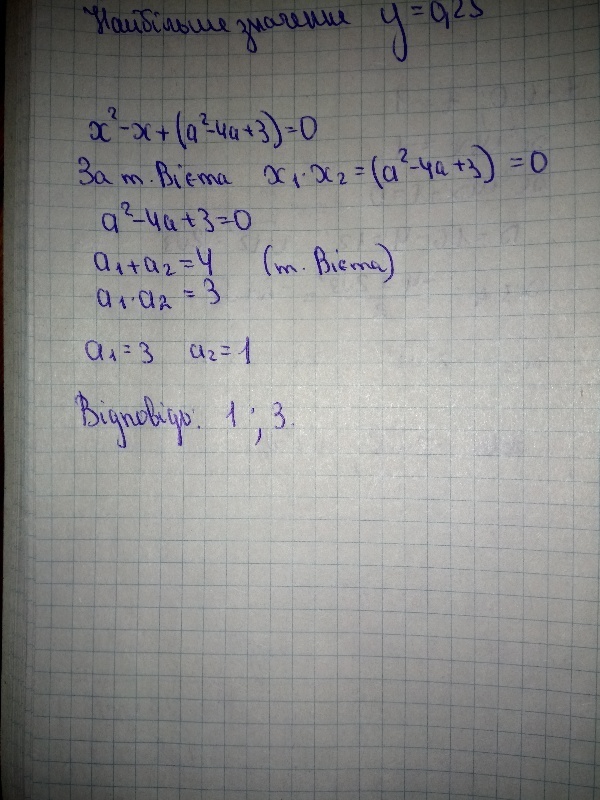 Найбільше значення y = 0,25
x² - x + (a² - 4a + 3) = 0
За т. Вієта x₁ · x₂ = (a² - 4a + 3) = 0
a² - 4a + 3 = 0
a₁ + a₂ = 4 (т. Вієта)
a₁ · a₂ = 3
a₁ = 3 a₂ = 1
Відповідь: 1 ; 3.